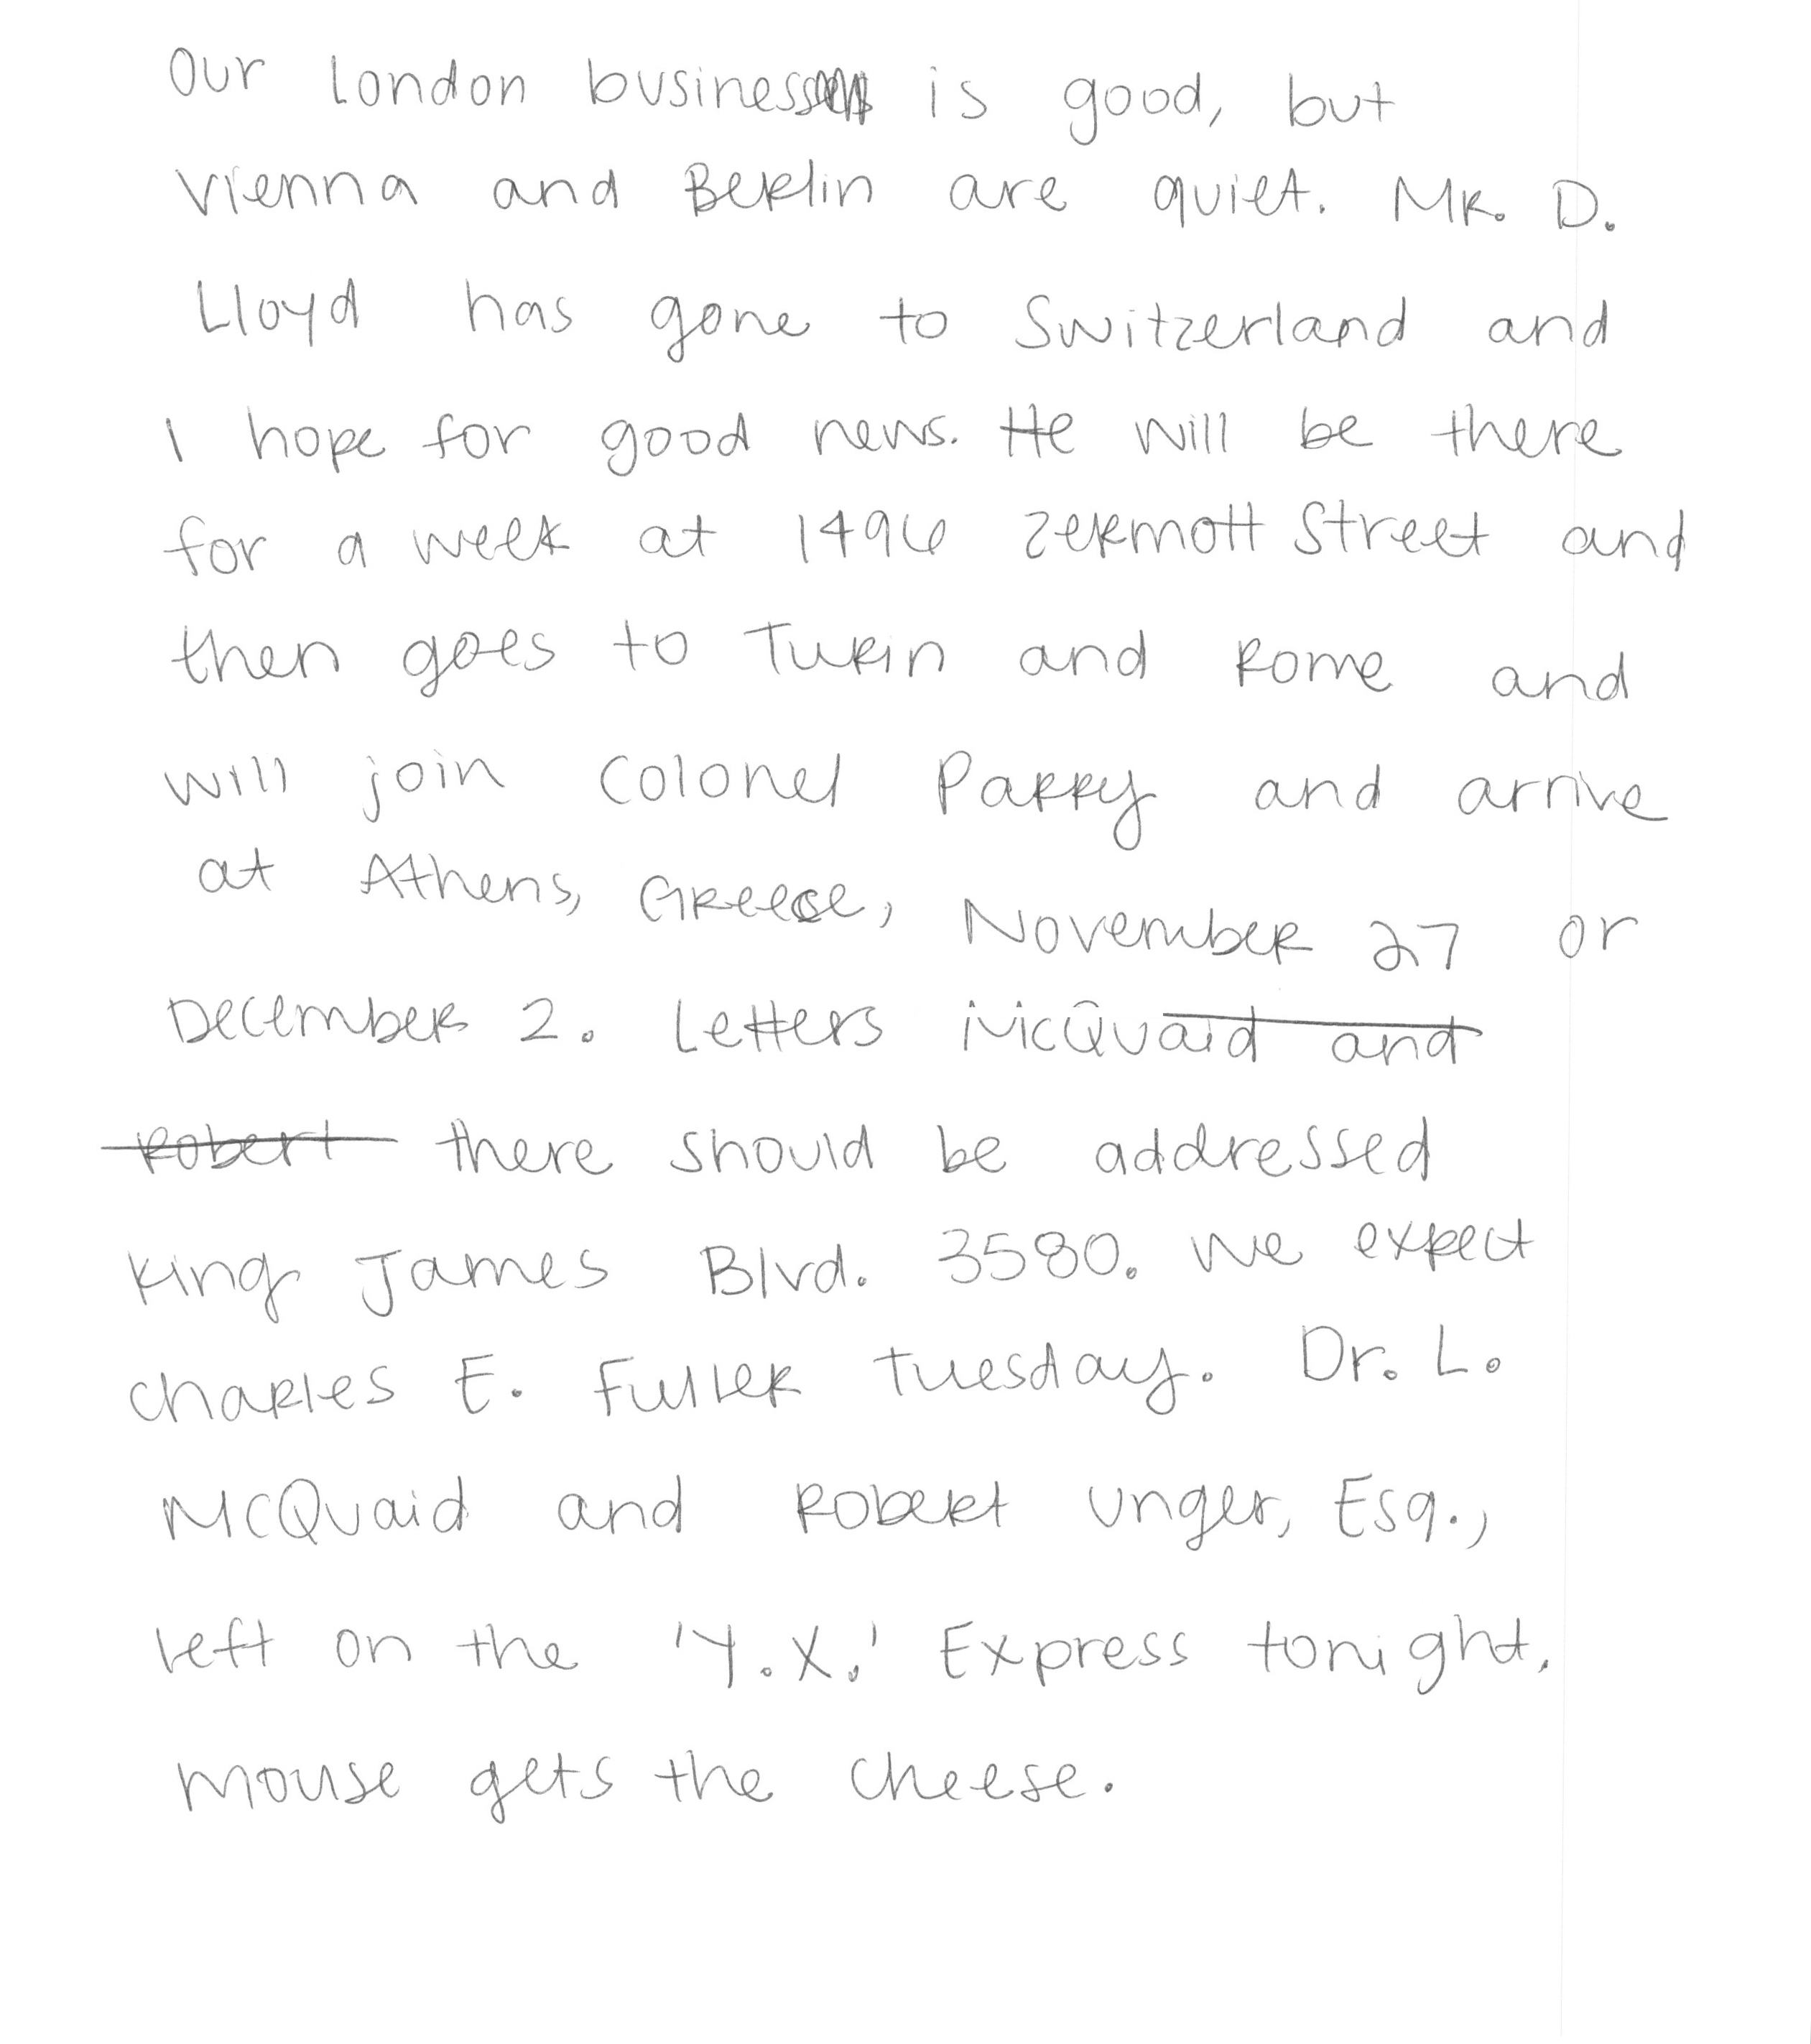 Our London business is good, but
Vienna and Berlin are quiet. Mr. D.
Lloyd has gone to Switzerland and
I hope for good news. He will be there
for a week at 1496 Zermott Street and
then goes to Turin and Rome and
will join Colonel Parry and arrive
at Athens, Greece, November 27 or
December 2. Letters McQuaid and
Robert there should be addressed
King James Blvd. 3580. We expect
Charles E. Fuller Tuesday. Dr. L.
McQuaid and Robert Unger, Esq.,
left on the 'Y.X.' Express tonight.
mouse gets the cheese.